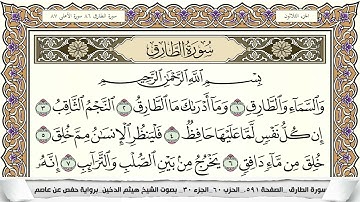 الجزء الثلاثون
سورة الطارق ٨٦ سورة الأعلى ٨٧
سُورَةُ الطَّارِقِ
بِسْمِ اللَّهِ الرَّحْمَٰنِ الرَّحِيمِ
وَالسَّمَاءِ وَالطَّارِقِ ١ وَمَا أَدْرَاكَ مَا الطَّارِقُ ٢ النَّجْمُ الثَّاقِبُ
٣ إِن كُلُّ نَفْسٍ لَّمَّا عَلَيْهَا حَافِظٌ ٤ فَلْيَنظُرِ الْإِنسَانُ مِمَّ خُلِقَ ٥
خُلِقَ مِن مَّاءٍ دَافِقٍ ٦ يَخْرُجُ مِن بَيْنِ الصُّلْبِ وَالتَّرَائِبِ ٧ إِنَّهُ
سورة الطارق _ الصفحة ٥٩١ _ الحزب ٦٠ _ الجزء ٣٠ _ بصوت الشيخ هيثم الدخين _ برواية حفص عن عاصم